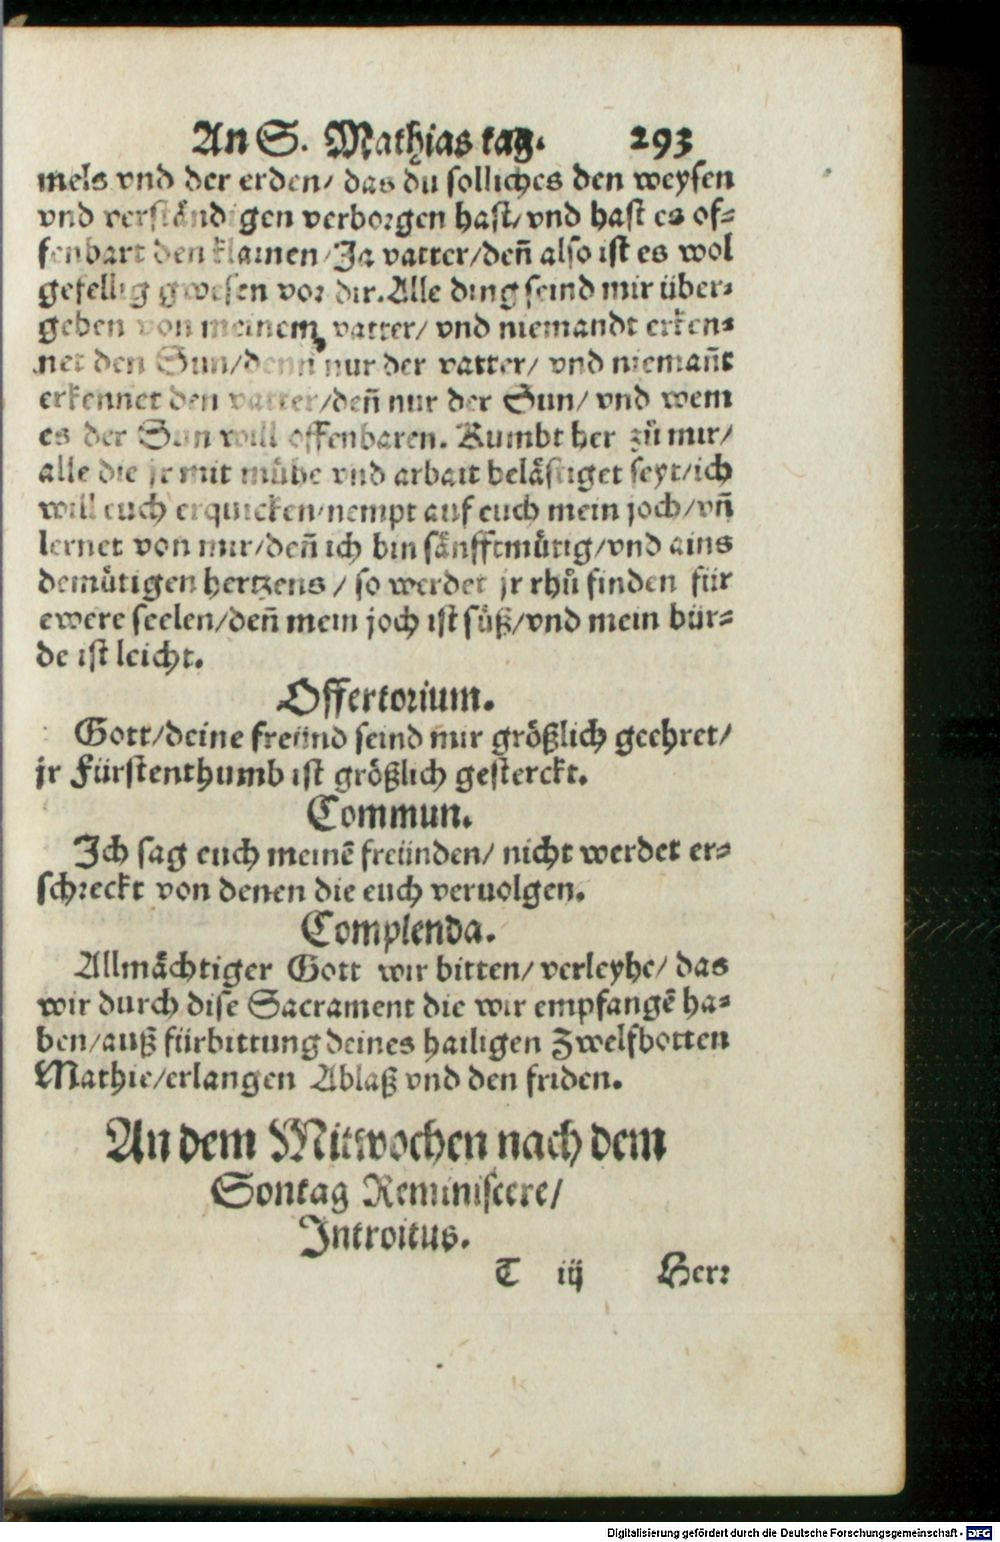 An S. Mathias tag. 293
mels vnd der erden/ das du solliches den weysen
vnd verständigen verborgen hast/ vnd hast es of⸗
fenbart den klainen/ Ja vatter/ deñ also ist es wol
gefellig gwesen vor dir. Alle ding seind mir über⸗
geben von meinem vatter/ vnd niemandt erken⸗
net den Sun/ denn nur der vatter/ vnd niemañt
erkennet den vatter/ deñ nur der Sun/ vnd wem
es der Sun will offenbaren. Kumbt her zů mir/
alle die jr mit mühe vnd arbait belästiget seyt/ ich
will euch erquicken/ nempt auf euch mein joch/ vñ
lernet von mir/ deñ ich bin sänfftmütig/ vnd ains
demütigen hertzens / so werdet jr rhů finden für
ewere seelen/ deñ mein joch ist süß/ vnd mein bür⸗
de ist leicht.
Offertorium.
Gott/ deine freünd seind mir größlich geehret/
jr Fürstenthumb ist größlich gesterckt.
Commun.
Ich sag euch meinē freünden/ nicht werdet er⸗
schreckt von denen die euch veruolgen.
Complenda.
Allmächtiger Gott wir bitten/ verleyhe/ das
wir durch dise Sacrament die wir empfangē ha⸗
ben/ auß fürbittung deines hailigen Zwelfbotten
Mathie/ erlangen Ablaß vnd den friden.
An dem Mitwochen nach dem
Sontag Reminiscere/
Introitus.
T iij Herr
Digitalisierung gefördert durch die Deutsche Forschungsgemeinschaft - DFG